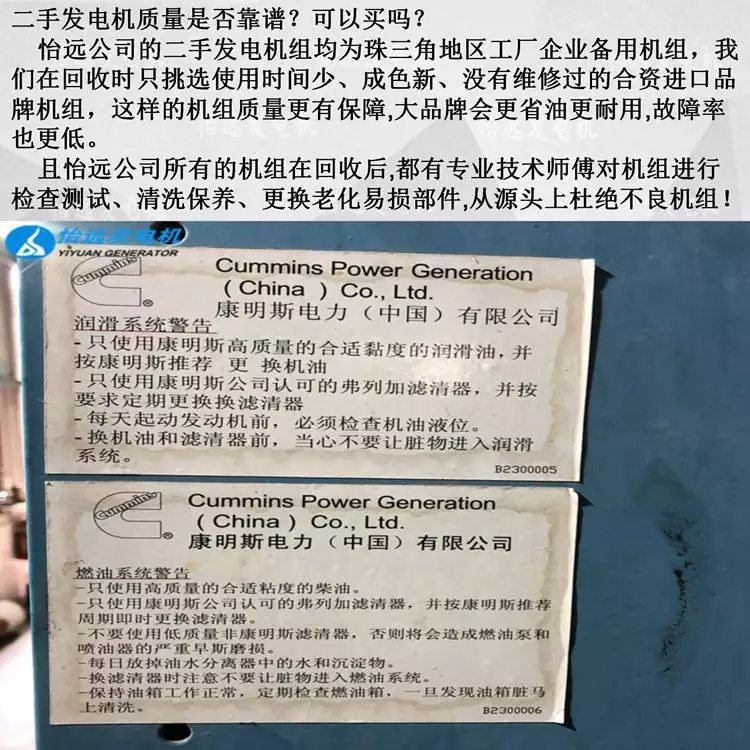 二手发电机质量是否靠谱？可以买吗？
怡远公司的二手发电机组均为珠三角地区工厂企业备用机组，我
们在回收时只挑选使用时间少、成色新、没有维修过的合资进口品
牌机组，这样的机组质量更有保障,大品牌会更省油更耐用,故障率
也更低。
且怡远公司所有的机组在回收后,都有专业技术师傅对机组进行
检查测试、清洗保养、更换老化易损部件,从源头上杜绝不良机组！
怡远发电机
怡远发电机
YIYUAN GENERATOR
Cummins
®
Cummins Power Generation
(China) Co., Ltd.
康明斯电力（中国）有限公司
润滑系统警告
-只使用康明斯高质量的合适黏度的润滑油,并
按康明斯推荐 更 换机油
-只使用康明斯公司认可的弗列加滤清器，并按
要求定期更换换滤清器
-每天起动发动机前，必须检查机油液位。
-换机油和滤清器前，当心不要让脏物进入润滑
系统。
B2300005
Cummins
®
Cummins Power Generation
(China) Co., Ltd.
康明斯电力（中国）有限公司
燃油系统警告
-只使用高质量的合适粘度的柴油。
-只使用康明斯公司认可的弗列加滤清器，并按康明斯推荐
周期即时更换滤清器。
-不要使用低质量非康明斯滤清器，否则将会造成燃油泵和
喷油器的严重早斯磨损。
-每日放掉油水分离器中的水和沉淀物。
-换滤清器时注意不要让脏物进入燃油系统。
-保持油箱工作正常，定期检查燃油箱，一旦发现油箱脏马
上清洗。
B2300006